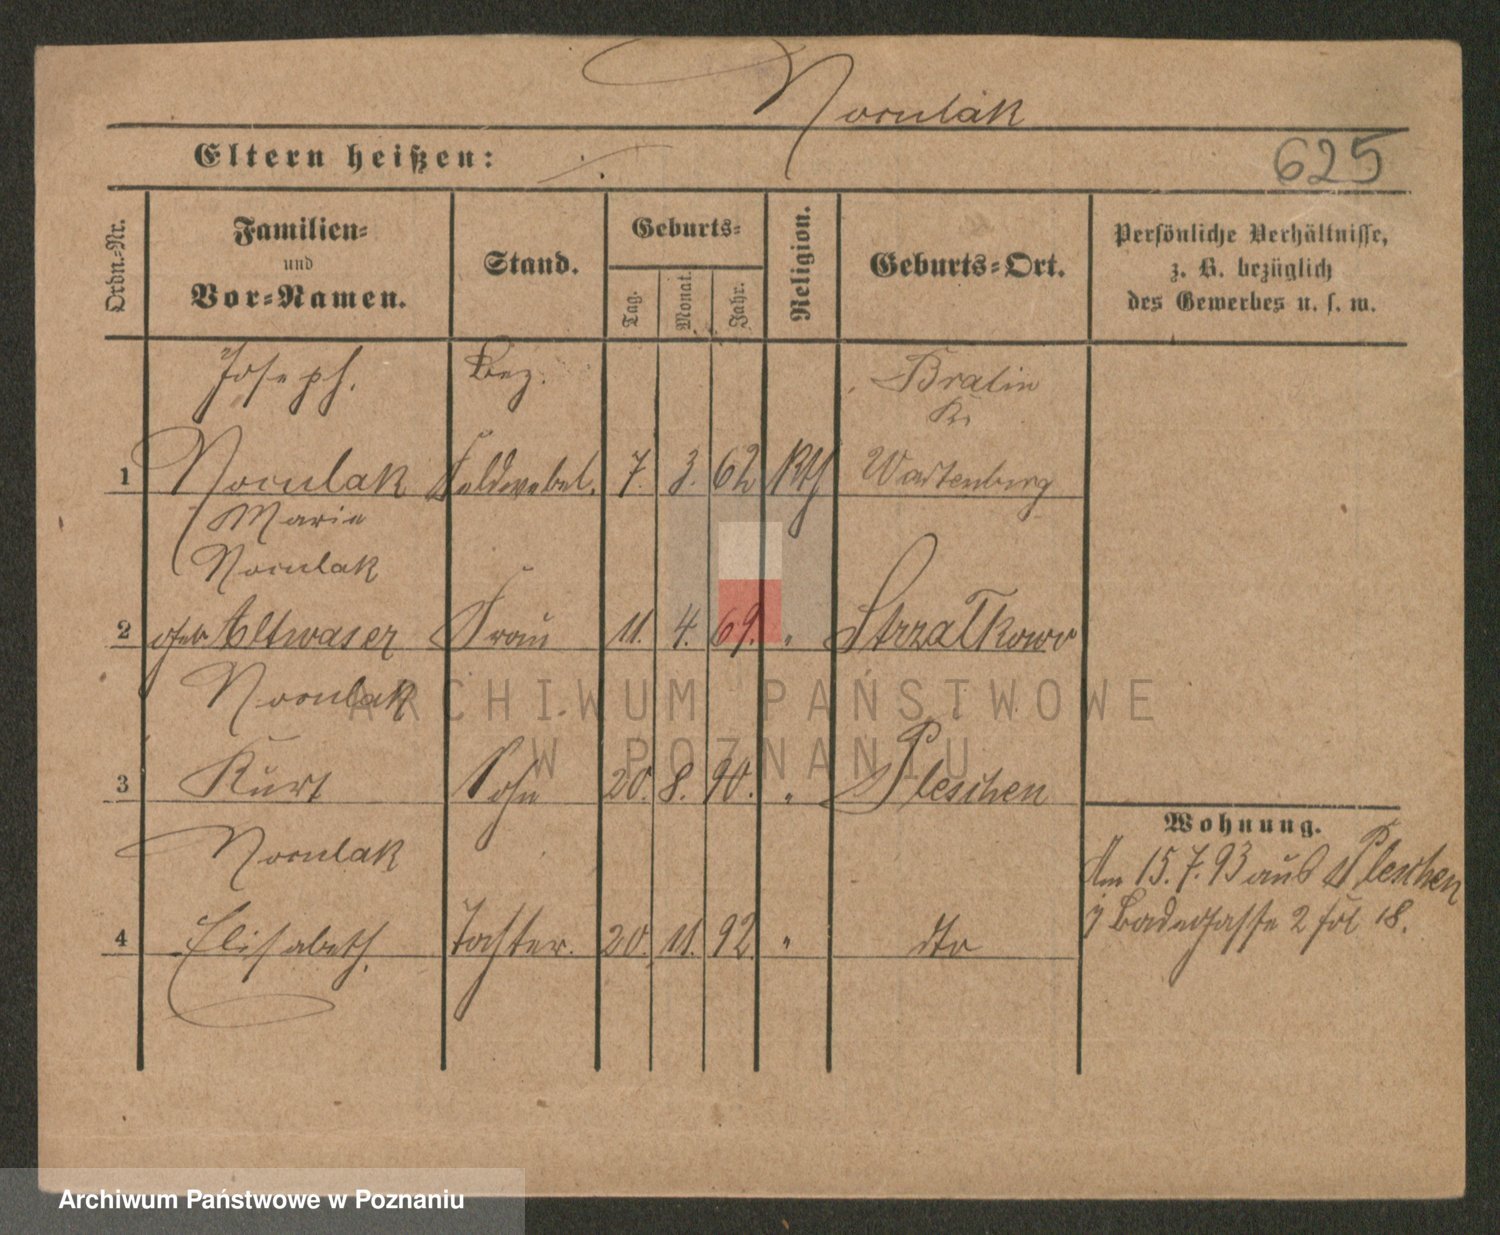 Noculak
Eltern heißen:
625
Ordn.-Nr.
Familien=
und
Vor=Namen.
Stand.
Geburts=
Tag.
Monat.
Jahr.
Religion.
Geburts=Ort.
Persönliche Verhältnisse,
z. B. bezüglich
des Gewerbes u. s. w.
Joseph.
Bez.
Bralin
Kr.
1 Noculak Feldwebel. 7. 3. 62 Kth Wartenberg
Marie
Noculak
2 geb Altwaser Frau 11. 4. 69. " Strzalkowo
Noculak
3 Kurt Sohn 20. 8. 90. " Pleschen
Noculak
4 Elisabeth. Tochter. 20. 11. 92. " dto
Wohnung.
Am 15.7.93 aus Pleschen
Badegasse 2 18.
ARCHIWUM PAŃSTWOWE
W POZNANIU
Archiwum Państwowe w Poznaniu